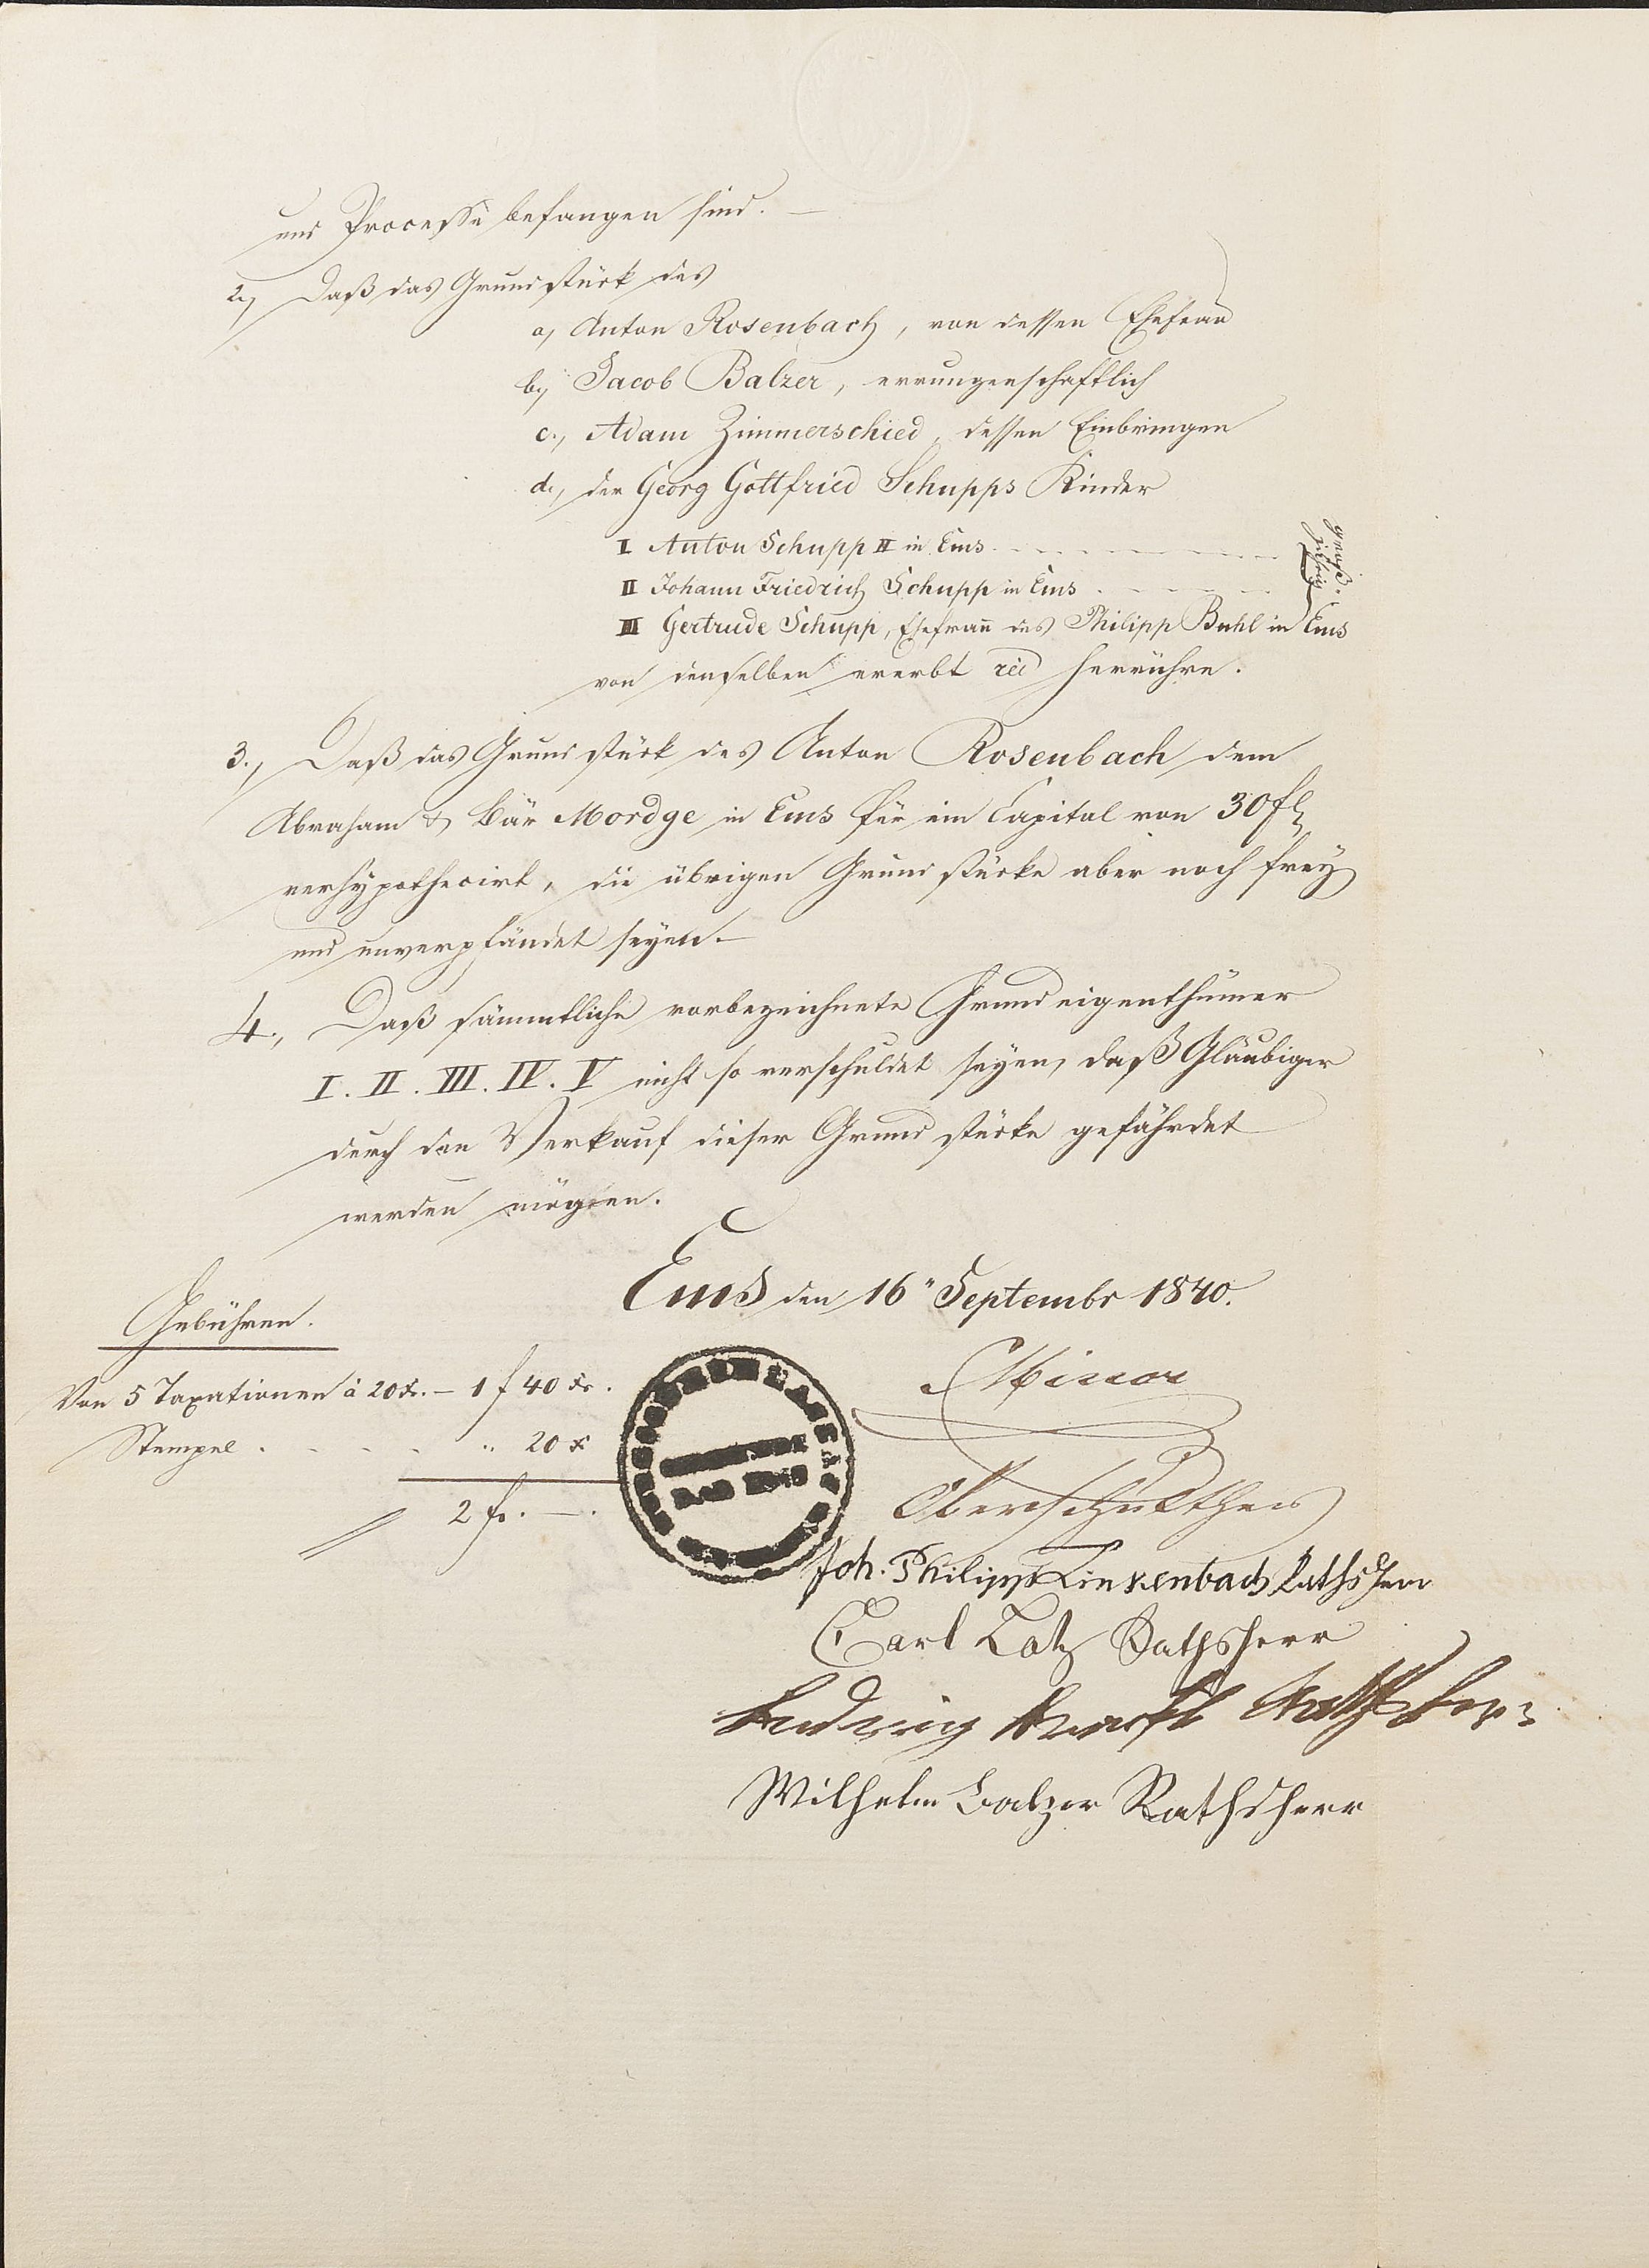 und Processe befangen sind. —
2., Daß das Grundstück des
a, Anton Rosenbach, von dessen Ehefrau
b, Jacob Balzer, errungenschaftlich
c., Adam Zimmerschied, dessen Einbringen
d., der Georg Gottfried Schupps Kinder
I Anton Schupp II in Ems
II Johann Friedrich Schupp in Ems
III Gertrude Schupp, Ehefrau des Philipp Buhl in Ems
von denselben ererbt herrühre.
3., Daß das Grundstück des Anton Rosenbach dem
Abraham & Bär Mordge in Ems für ein Capital von 30 fl
verhypothecirt, die übrigen Grundstücke aber noch frey
und unverpfändet seyen. —
4., Daß sämmtliche vorbezeichnete Grundeigenthümer
I. II. III. IV. V nicht so verschuldet seyen, daß Gläubiger
durch den Verkauf dieser Grundstücke gefährdet
werden mögten.
Ems den 16" Septembr 1840.
Gebühren.
Von 5 Taxationen à 20 x. — 1 f 40 x.
Stempel . . . . " 20 x
2 f. —.
Minor
Oberschultheis
Joh. Philipp Linkenbach Rathsherr
Carl Lotz Rathsherr
Ludwig Rathsherr
Wilhelm Balzer Rathsherr